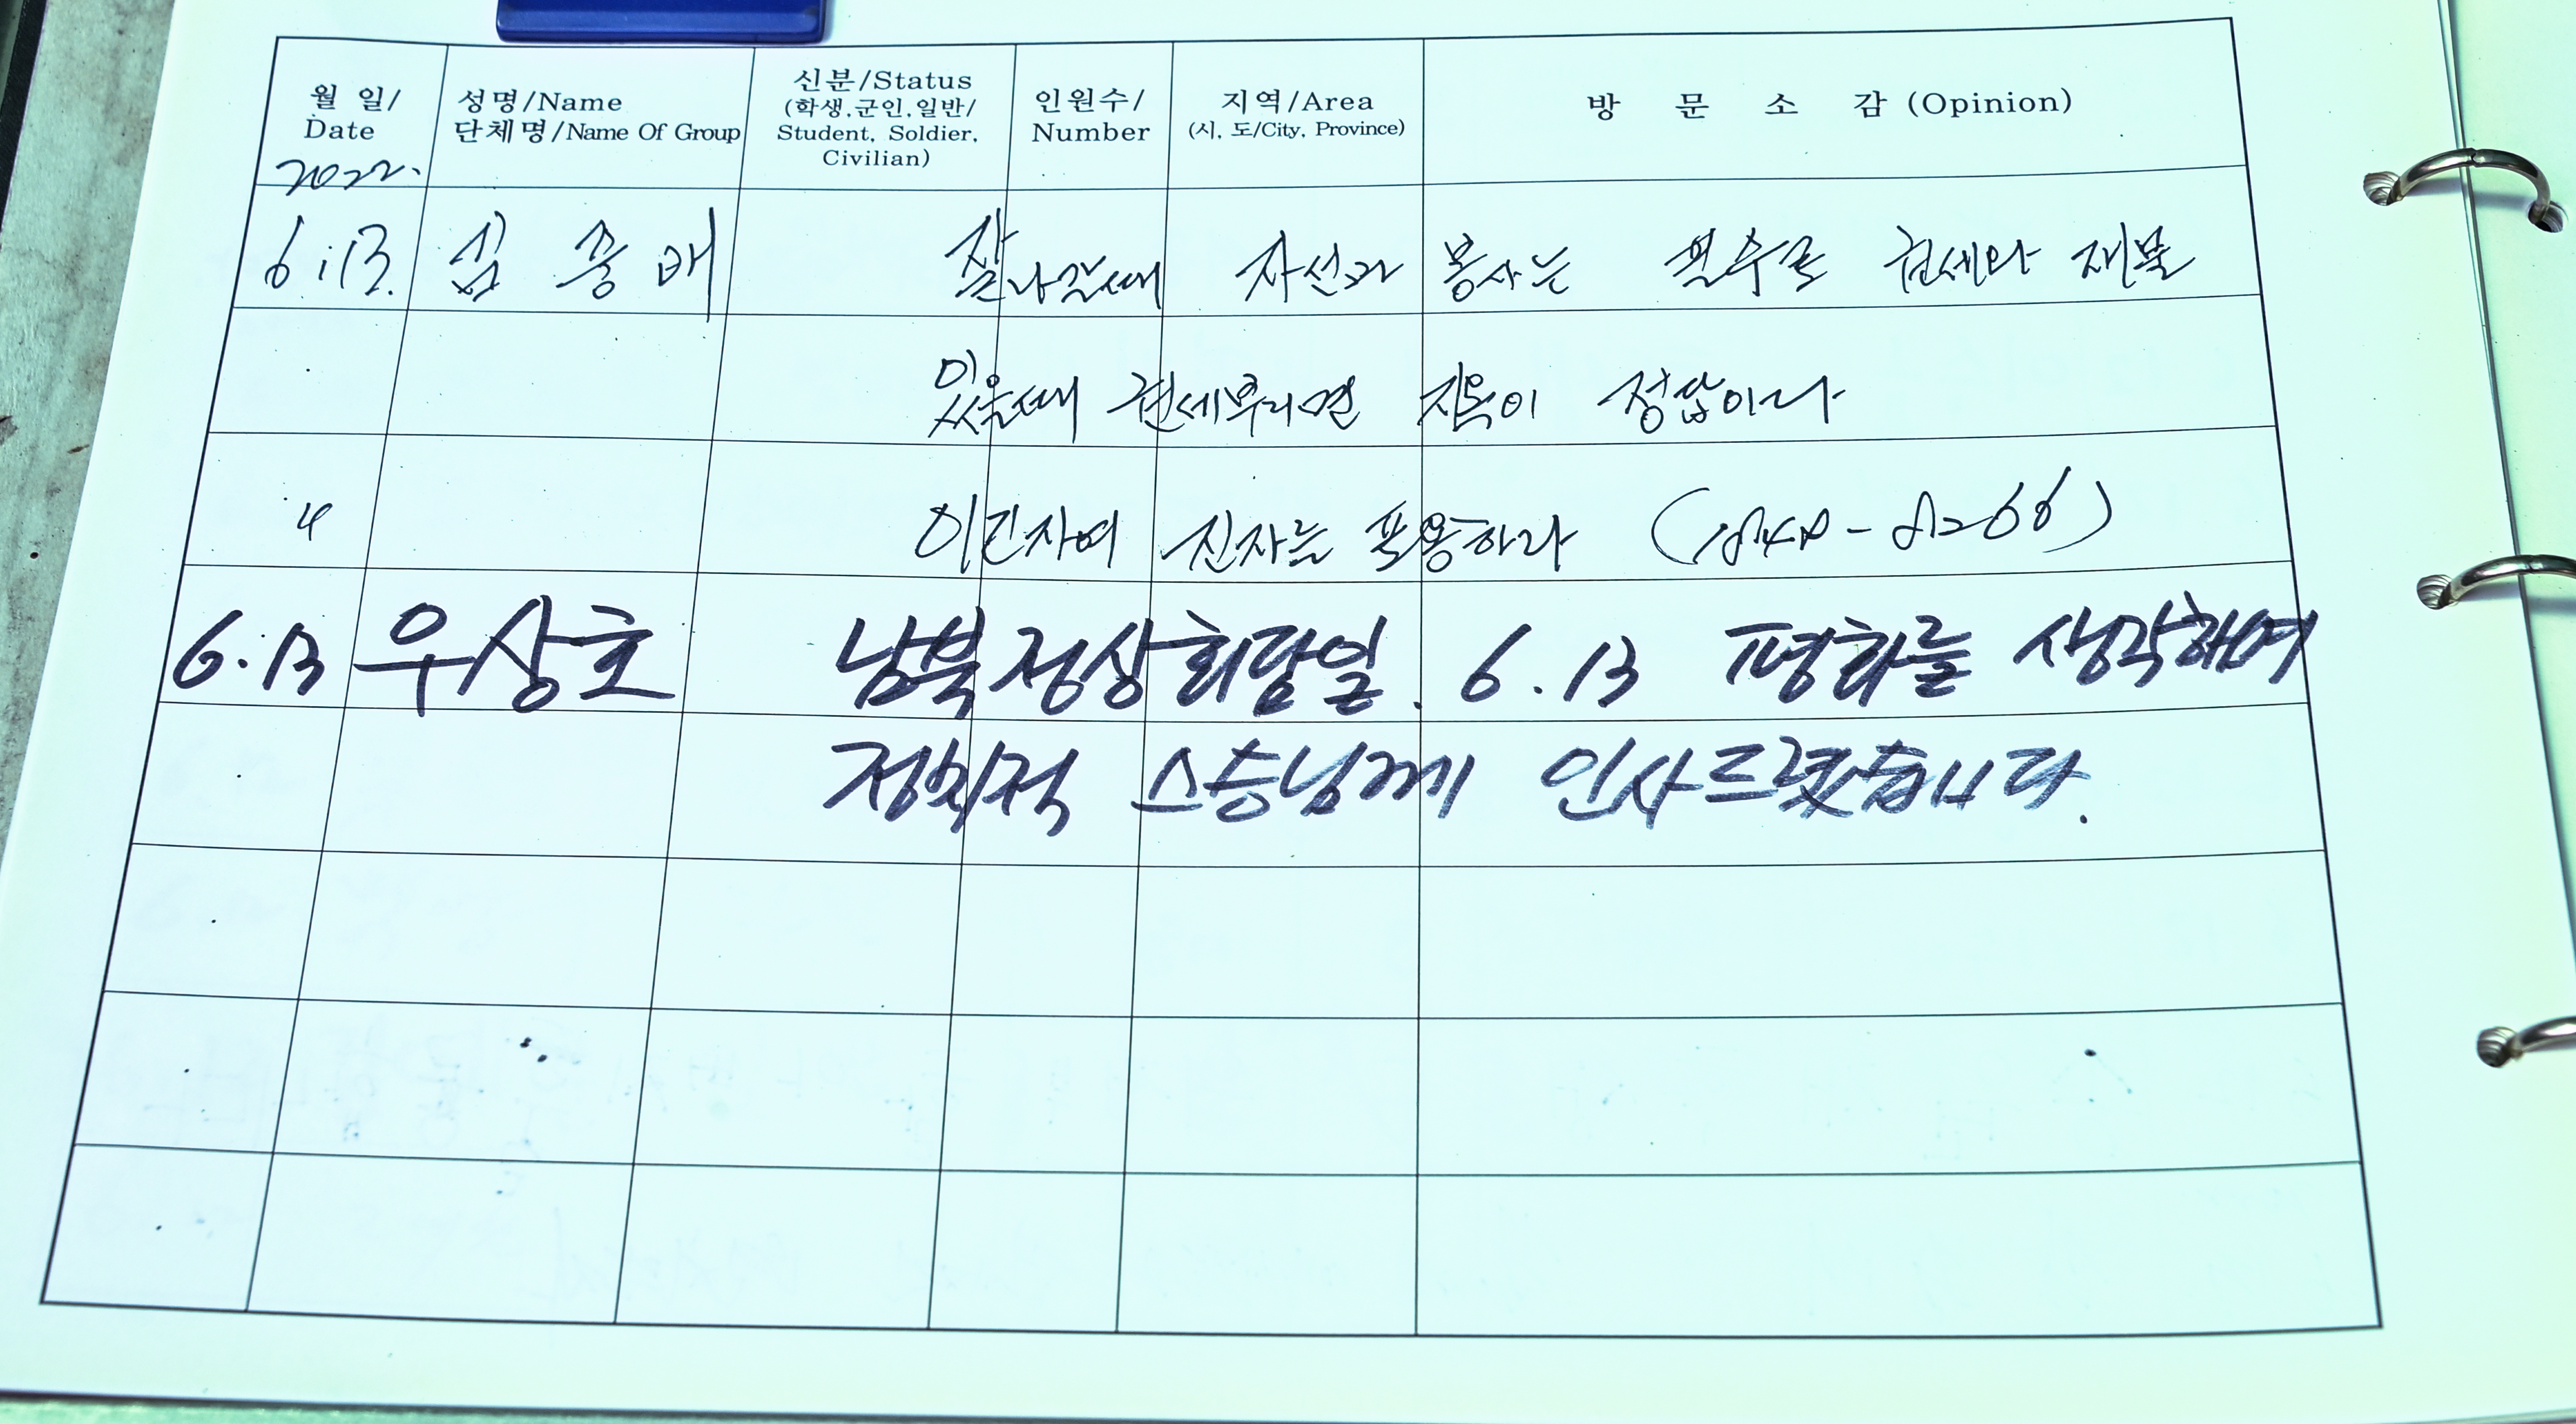 월 일/
Date
성명/Name
단체명/Name Of Group
신분/Status
(학생.군인.일반/
Student, Soldier,
Civilian)
인원수/
Number
지역/Area
(시, 도/City, Province)
방 문 소 감 (Opinion)
2022.
6.13. 심 풍 배 잘나갈때 자선과 봉사는 필수로 권세와 재물
있을때 권세부리면 지옥이 정답이다
4 이긴자여 진자는 포용하라
6.13 우상호 남북정상회담일. 6.13 평화를 생각하며
정치적 스승님께 인사드렸습니다.